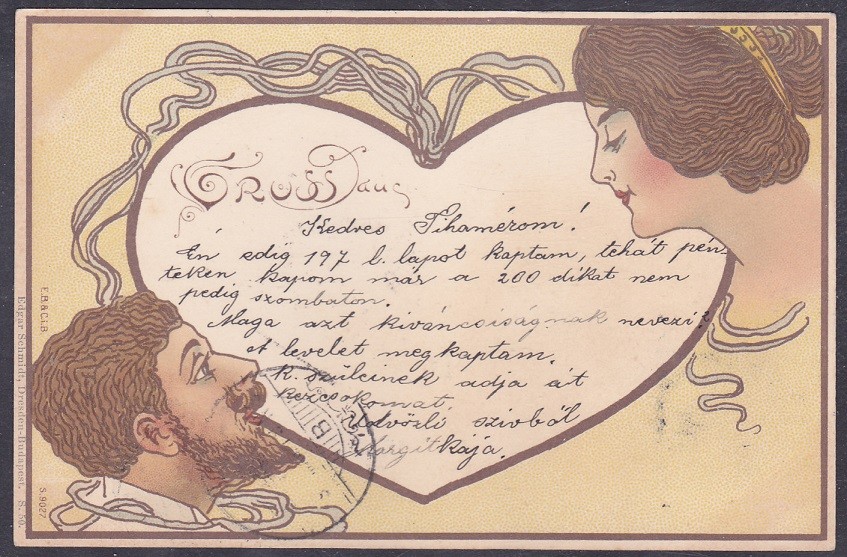 Gruss aus
Kedves Tihamérom!
Én edig 197 l. lapot kaptam, tehát pén-
teken kapom már a 200 dikat nem
pedig szombaton.
Maga azt kiváncsiságnak nevezi?
A levelet megkaptam.
K. szüleinek adja át
kézcsokomat
Üdvözli szivből
Margitkája.
E.B.&C.i.B.
Edgar Schmidt, Dresden-Budapest, S. 50.
S.9027